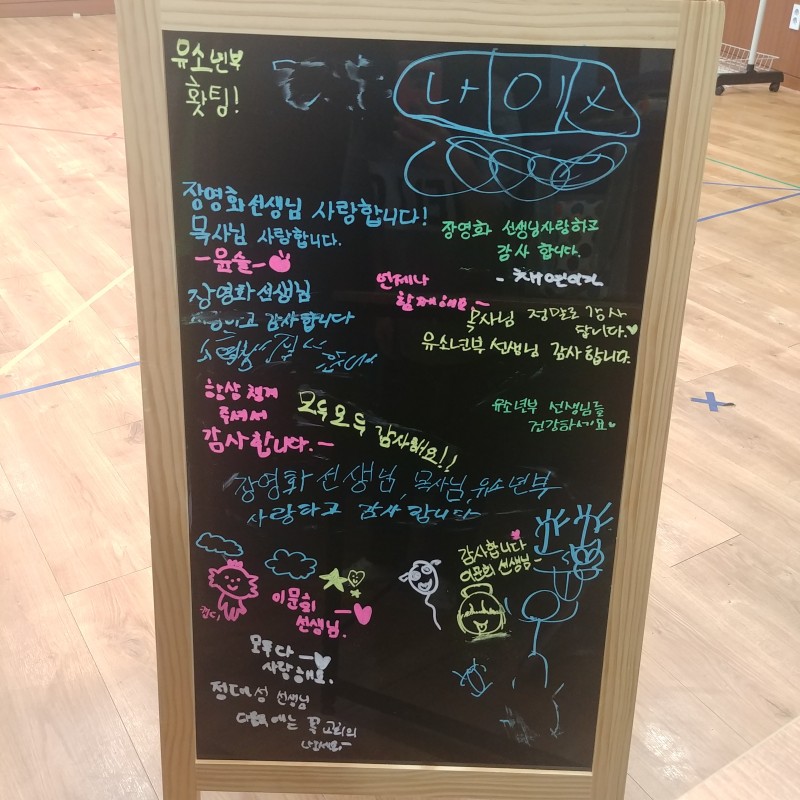 유소년부
홧팅!
장영화선생님 사랑합니다!
목사님 사랑합니다.
-윤슬-
장영화 선생님사랑하고
감사 합니다.
장영화선생님
감사합니다
언제나
함께해요-
목사님 정말로 감사
합니다.
유소년부선생님 감사합니다.
항상 챙겨
주셔서
감사합니다.-
모두모두 감사해요!!
유소년부 선생님들
건강하세요
장영화선생님, 목사님, 유소년부
사랑하고 감사합니다
감사합니다
이문희 선생님-
이문희
선생님.
모두다-
사랑해요.
정대성 선생님
꼭